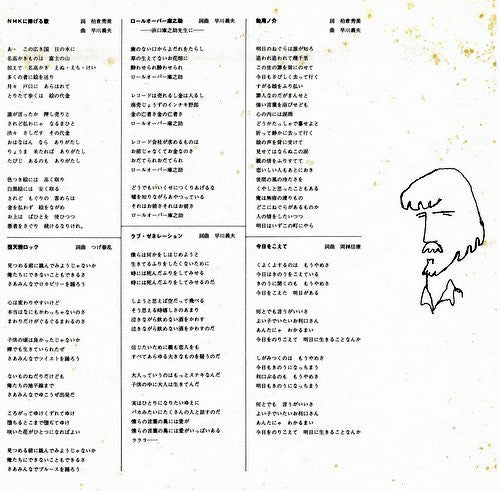 NHKに捧げる歌
詞 柏倉秀美
曲 早川義夫
あゝ この広き国 日の本に
名高きものは 富士の山
加えて 名高き えぬ・えち・けい
多くの者に絵を送り
月々 戸口に あらはれて
とりたて歩くは 絵の代金
誰が言ったか 押し売りと
されど払わにゃ なるまひと
渋々 さしだす その代金
おはなはん なら ありがたし
りょうま 来たれば ありがたし
たびじ あるのも ありがたし
色つき絵には 高く取り
白黒絵は 安く取る
されど もぐりの 客めらは
金を払わず 絵をながめ
お上は ばひとを 使ひつつ
悪者をさぐり 続けるなりけれ。
堕天使ロック
詞曲 つげ春乱
見つめる前に跳んでみようじゃないか
俺たちにできないこともできるさ
さあみんなでロカビリーを踊ろう
心は変わりやすいけど
本当はなにもかわっちゃいないのさ
まわりだけがぐるぐるまわるのさ
子供の頃は良かったじゃないか
裸でも生きていられたぜ
さあみんなでツイストを踊ろう
ないものねだりだけども
俺たちの地平線まで
さあみんなでゆこうぜ出発だ
ころがってゆけくずれてゆけ
堕ちるとこまで堕ちてゆけ
咲いた花がひとつになればよい
見つめる前に跳んでみようじゃないか
俺たちにできないこともできるさ
さあみんなでブルースを踊ろう
ロールオーバー庫之助
詞曲 早川義夫
──浜口庫之助先生に──
歯のない口からよだれをたらし
草の生えてないお花畑に
酔わせられ酔わせられ
ロールオーバー庫之助
レコードは売れるし金は入るし
商売じょうずのインチキ野郎
金の亡者さ金の亡者さ
ロールオーバー庫之助
レコード会社が求めるものは
お前じゃなくてお金なのさ
おだてられおだてられ
ロールオーバー庫之助
どうでもいいくせにつくりあげるな
嘘を知りながらあやつっている
それはお前さそれはお前さ
ロールオーバー庫之助
ラブ・ゼネレーション
詞曲 早川義夫
僕らは何かをしはじめようと
生きてるふりをしたくないために
時には死んだふりをしてみせる
時には死んだふりをしてみせるのだ
しようと思えば空だって飛べる
そう思える時嬉しさのあまり
泣きながら飲めない酒をかわす
泣きながら飲めない酒をかわすのだ
信じたいために親も恋人をも
すべてあらゆる大きなものを疑うのだ
大人っていうのはもっとステキなんだ
子供の中に大人は生きてんだ
実はひとりになりたいゆえに
バカみたいにたくさんの人と話すのだ
僕らの言葉の奥には愛が
僕らの言葉の奥には愛がいっぱいある
ラララ──
無用ノ介
詞 柏倉秀美
曲 早川義夫
明日のねぐらは誰が知ろ
今日もさびしく去って行く
すがる娘をふり払い
罪人なのだがまんせと
強い言葉を浴びせども
心の内には涙雨
どうかたっしゃで暮せよと
祈って静かに去って行く
娘の声を背に受けて
見せてはならぬこの涙
悲しい人もあとにおき
世間の風の冷たさを
くやしと思ったこともある
俺は無宿の渡りもの
どこにねぐらがあるものか
人の情をしたいつつ
明日はいずこの町にやら
今日をこえて
詞曲 岡林信康
くよくよするのは もうやめさ
今日はきのうをこえている
きのうに聞くのも もうやめさ
今日をこえた 明日がある
何とでも言うがいいさ
よい子でいたいお利口さん
あんたにゃ わかるまい
今日をのりこえて 明日に生きることなんか
しがみつくのは もうやめさ
今日もきのうになっちまう
利口ぶるのも もうやめさ
明日もきのうになっちまう
何とでも 言うがいいさ
よい子でいたいお利口さん
あんたにゃ わかるまい
今日をのりこえて 明日に生きることなんか